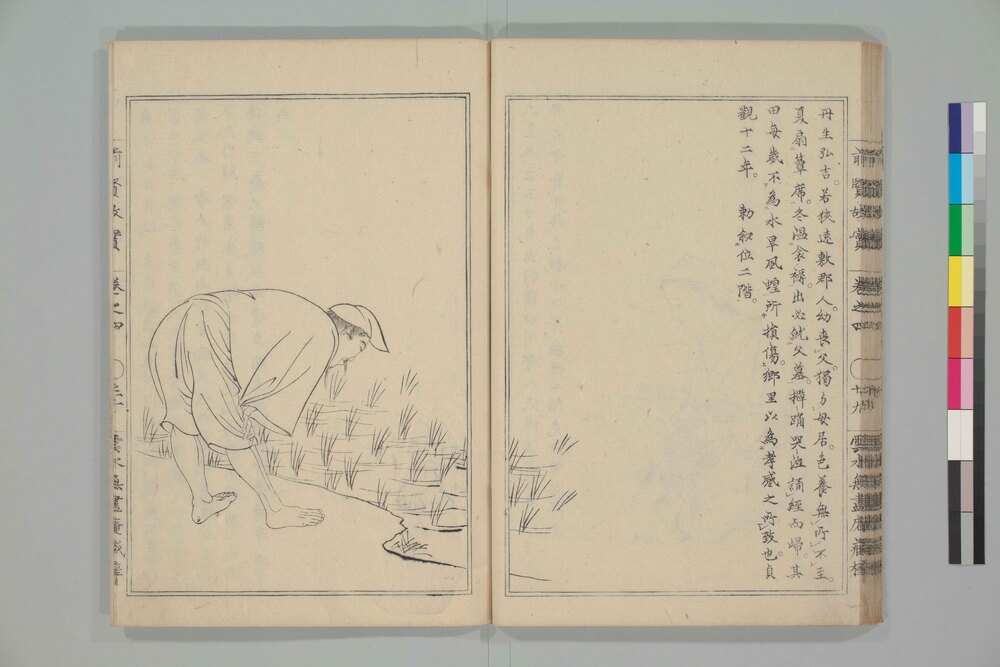 丹生弘吉。若狹遠敷郡人。幼喪父。獨與母居。色養無所不至。
夏扇簟席。冬溫衾褥。出必就父墓。擗踊哭泣。誦經而歸。其
田每歲不為水旱風蝗所損傷。鄉里以為孝感之所致也。貞
觀十二年。 勅叙位二階。
前賢故實 卷之四 十九 雲水無盡庵藏梓